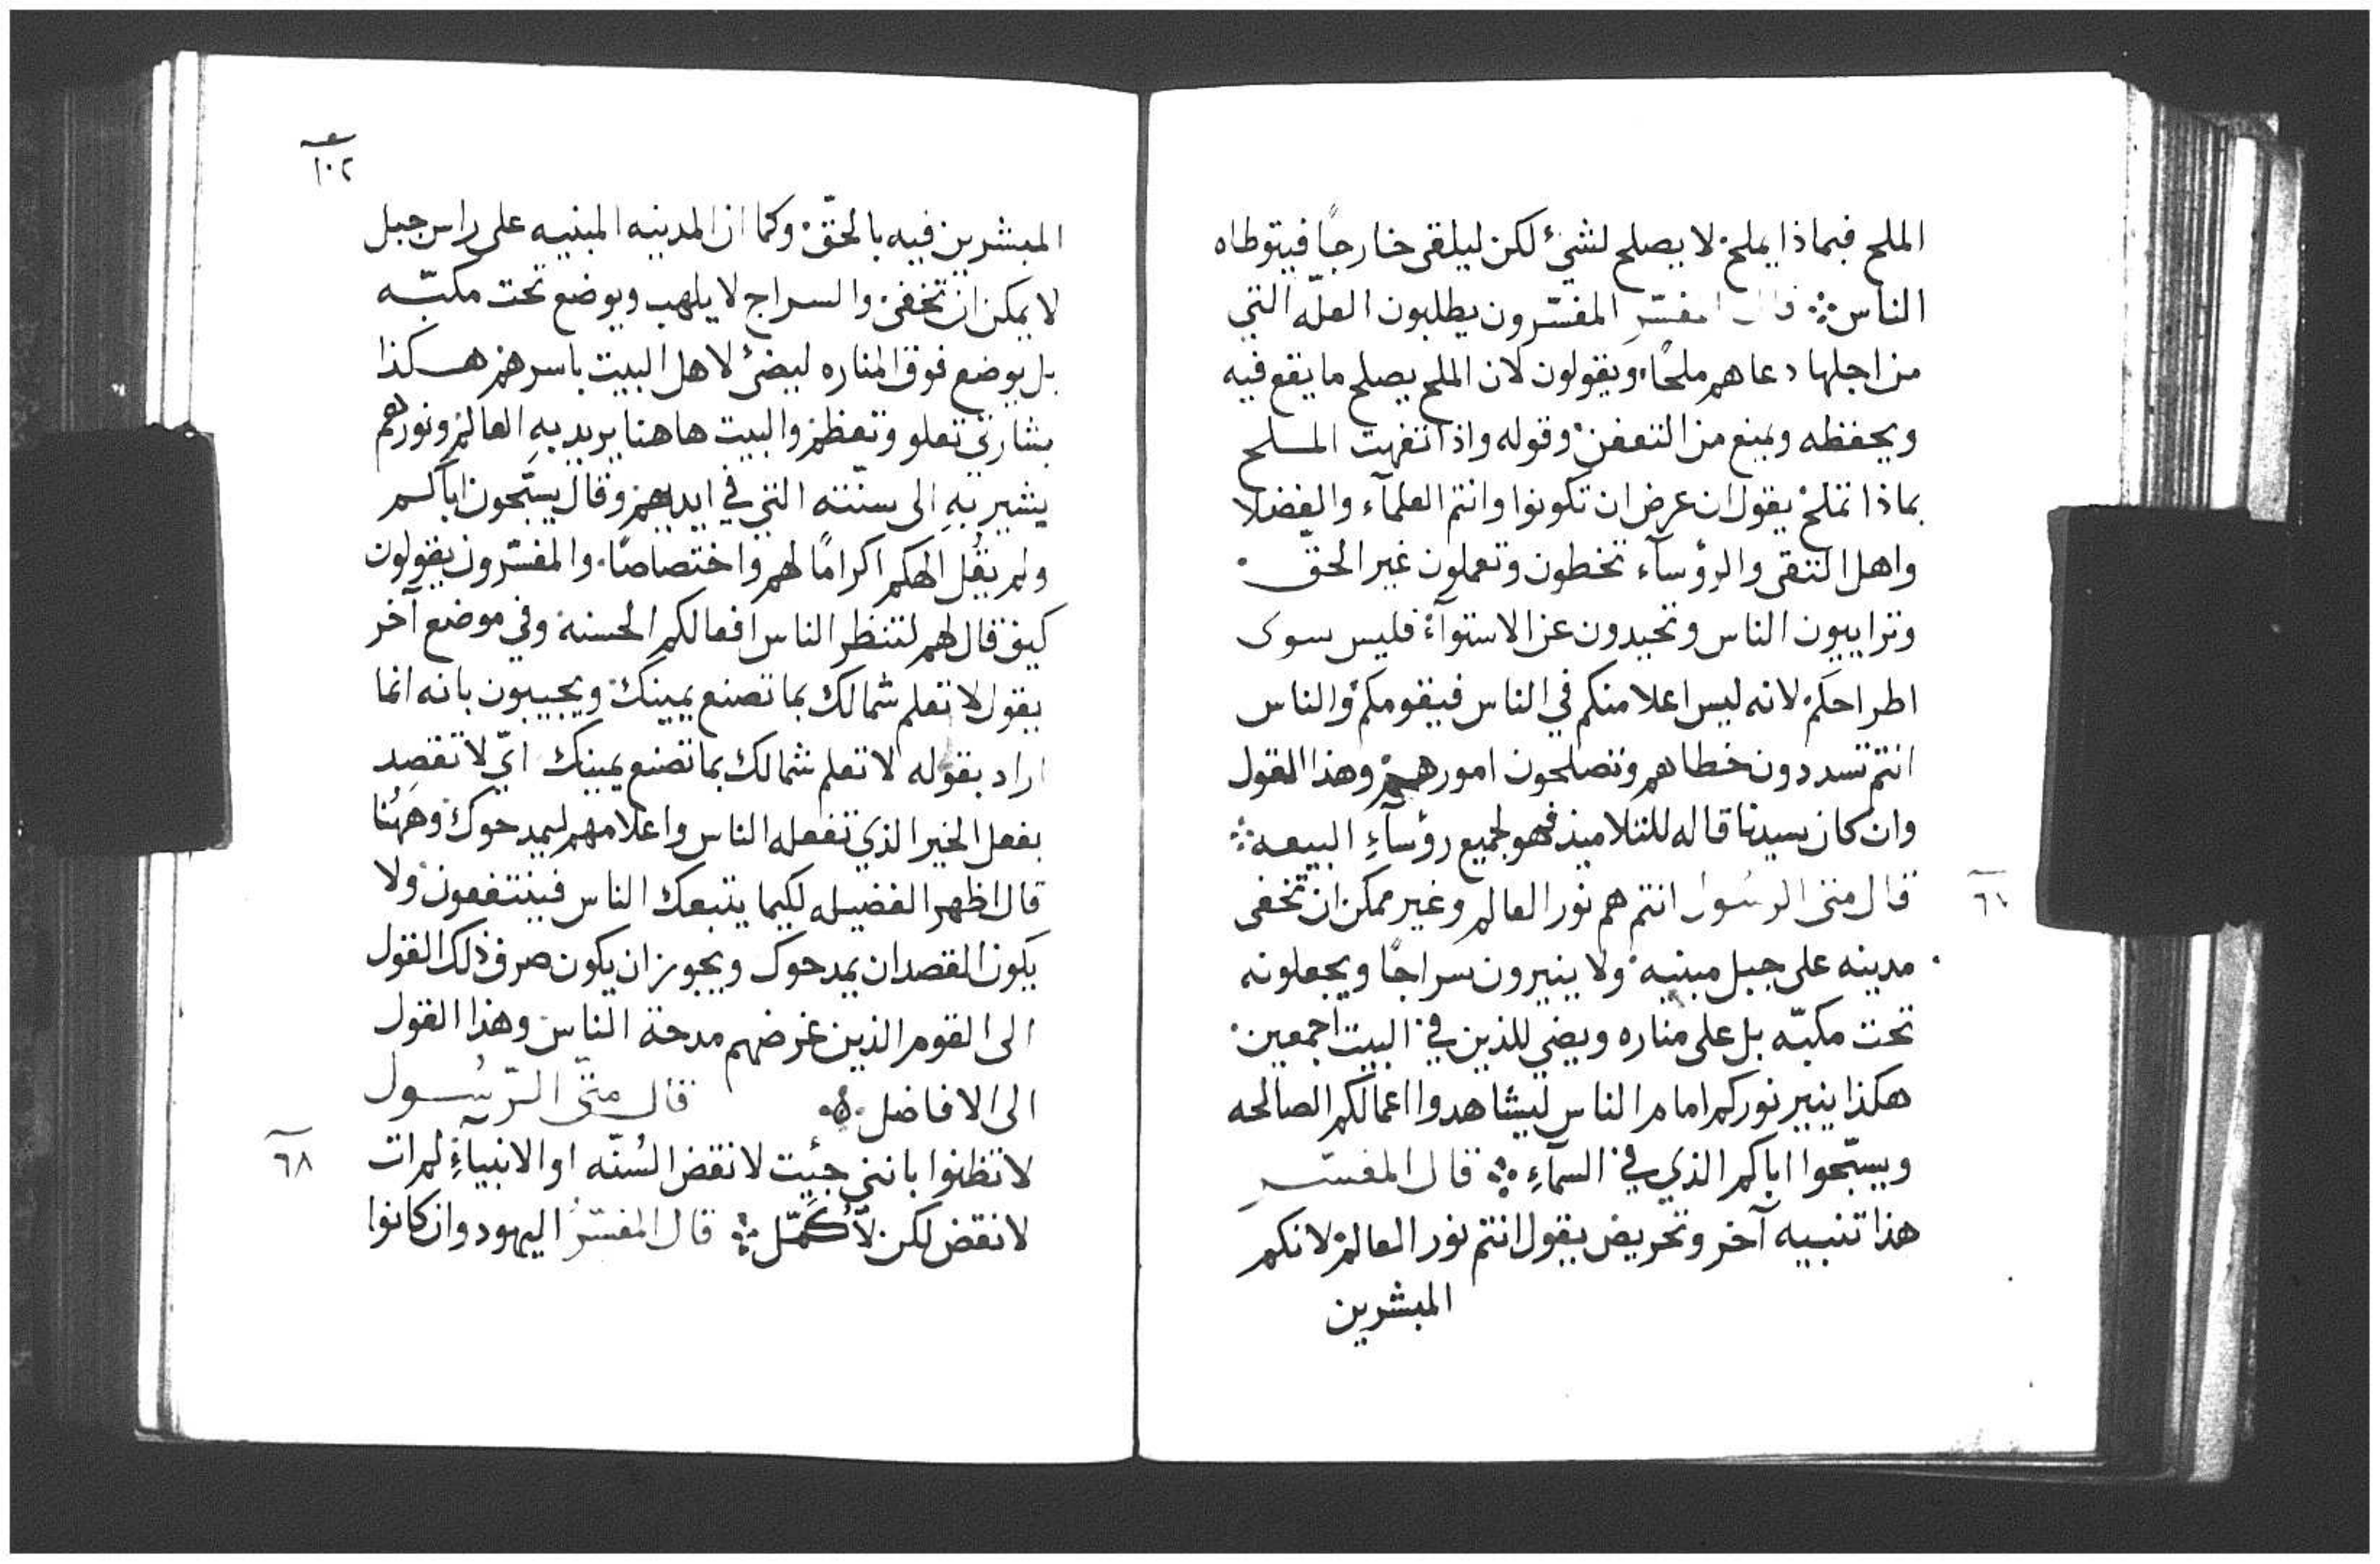 الملح فبماذا يملح لا يصلح لشيء لكن ليلقى خارجاً فيتوطاه
الناس ܀ قال المفسّر المفسّرون يطلبون العلّه التي
من اجلها دعاهم ملحًا ويقولون لان الملح يصلح ما يقع فيه
ويحفظه ويمنع من التعفن وقوله واذا تفهت الملح
بماذا تملح يقول ان عرض ان تكونوا وانتم العلمآء والفضلا
واهل التقى والرؤسآء تخطون وتعملون غير الحقّ
وتراييون الناس وتحيدون عن الاستوآء فليس سوى
اطراحكم لانه ليس اعلا منكم في الناس فيقومكم والناس
انتم تسددون خطاهم وتصلحون امورهم وهذا القول
وان كان سيدنا قاله للتلاميذ فهو لجميع رؤسآءِ البيعه ܀
قال متى الرسُول انتم هم نور العالم وغير ممكن ان تخفى
٦٧
مدينه على جبل مبنيه ولا ينيرون سراجًا ويجعلونه
تحت مكبّه بل على مناره ويضي للذين في البيت اجمعين
هكذا ينير نوركم امام الناس ليشاهدوا اعمالكم الصالحه
ويسبّحوا اباكم الذي في السمآءِ ܀ قال المفسّرِ
هذا تنبيه آخر وتحريض يقول انتم نور العالم لانكم
المبشرين
١٠٢
المبشرين فيه بالحقّ وكما ان المدينه المبنيه على راس جبل
لا يمكن ان تخفى والسراج لا يلهب ويوضع تحت مكبّه
بل يوضع فوق المناره ليضئ لاهل البيت باسرهم هكذا
بشارتي تعلو وتعظم والبيت هاهنا يريد بهِ العالم ونورهم
يشير بهِ الى سنّته التي في ايديهم وقال يسبّحون اباكم
ولم يقُل الهكم اكرامًا لهم واختصاصًا والمفسّرون يقولون
كيف قال لهم لتنظر الناس افعالكم الحسنه وفي موضع آخر
يقول لا تعلم شمالك بما تصنع يمينك ويجيبون بانه انما
اراد بقوله لا تعلم شمالك بما تصنع يمينك ايّ لا تقصِد
بفعل الخير الذي تفعله الناس واعلامهم ليمدحوك وههُنا
قال اظهر الفضيله لكيما يتبعك الناس فينتفعون ولا
يكون القصد ان يمدحوك ويجوز ان يكون صرف ذلك القول
الى القوم الذين غرضهم مدحة الناس وهذا القول
الى الافاضل قال متّى الرّسُول
لا تظنوا بانني جئيت لانقض السُنّه او الانبيآءِ لم ات
٦٨
لانقض لكن لأُكمّل ܀ قال المفسّرُ اليهود وان كانوا